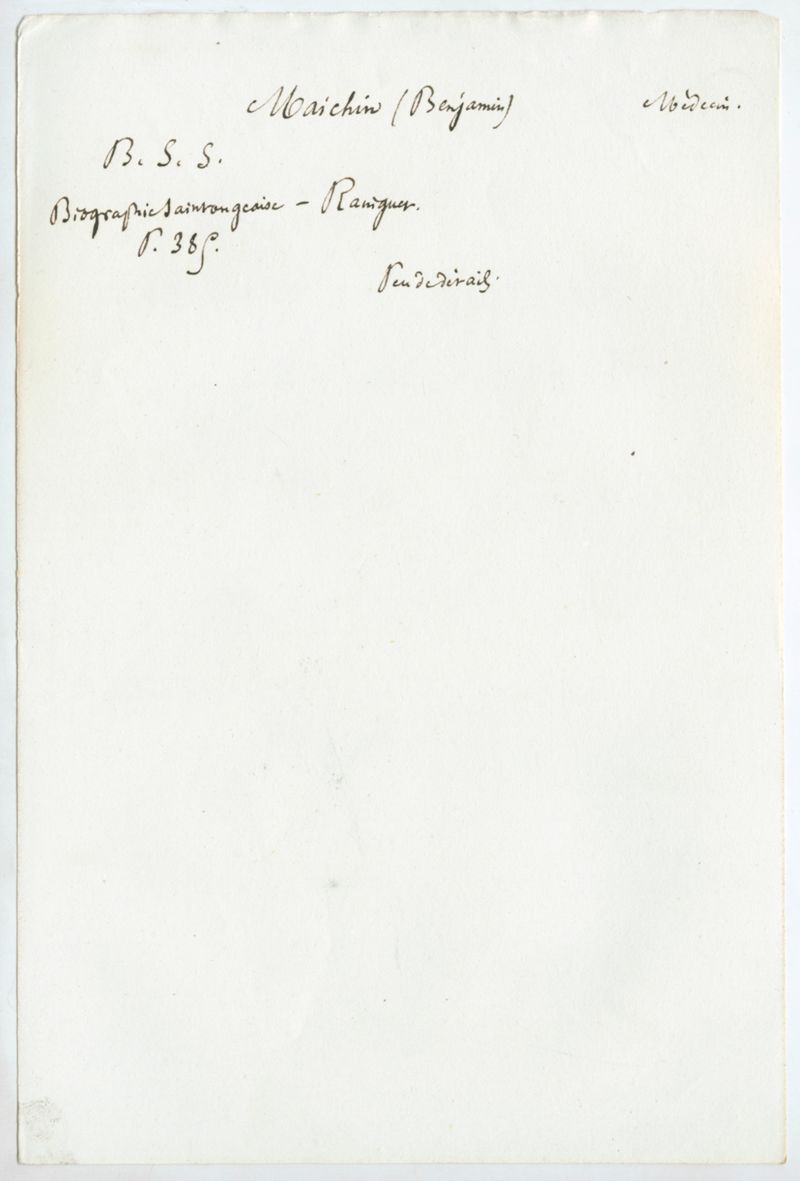 Maichin (Benjamin) Médecin.
B. S. S.
Biographie Saintongeaise – Rainguet.
P. 385.
Peu de détails.